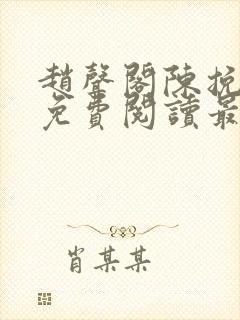 趙聲閣陳挽
免費閱讀最
肖某某